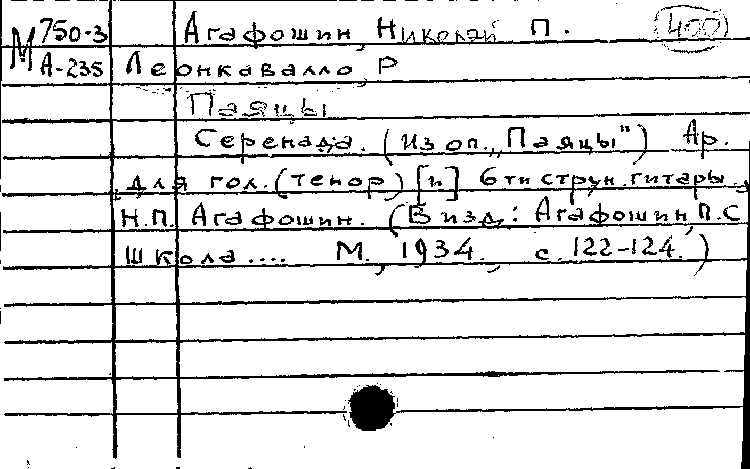 М 750-3 Агафошин, Николай П. 400
А-235 Леонкавалло, Р
Паяцы
Серенада. (из оп. „Паяцы") Ар.
для гол. (тенор) [и] 6ти струн. гитары.
Н.П. Агафошин. (В изд.: Агафошин, П.С.
Школа .... М., 1934., с. 122-124.)